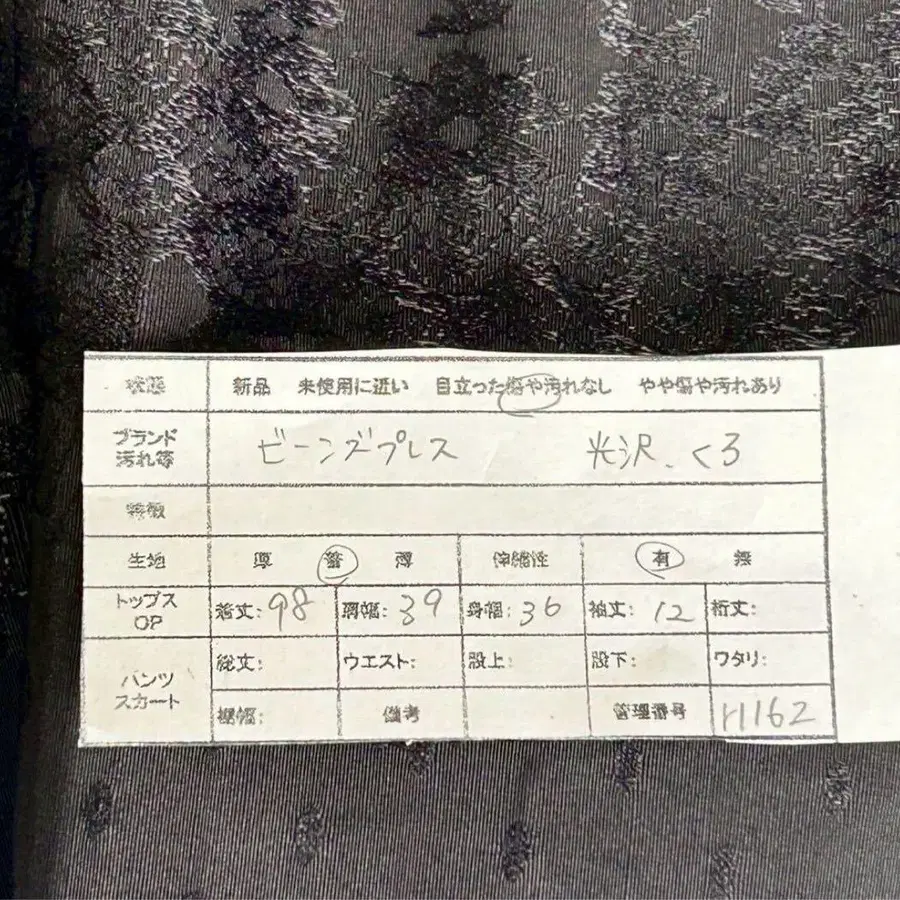 状態 新品 未使用に近い 目立った傷や汚れなし やや傷や汚れあり
ブランド 汚れ等 ビーンズプレス 光沢、くろ
特徴
生地 厚 普 薄 伸縮性 有 無
トップス OP 着丈:98 肩幅:39 身幅:36 袖丈:12 裄丈:
パンツ スカート 総丈: ウエスト: 股上: 股下: ワタリ:
裾幅: 備考 管理番号 H162